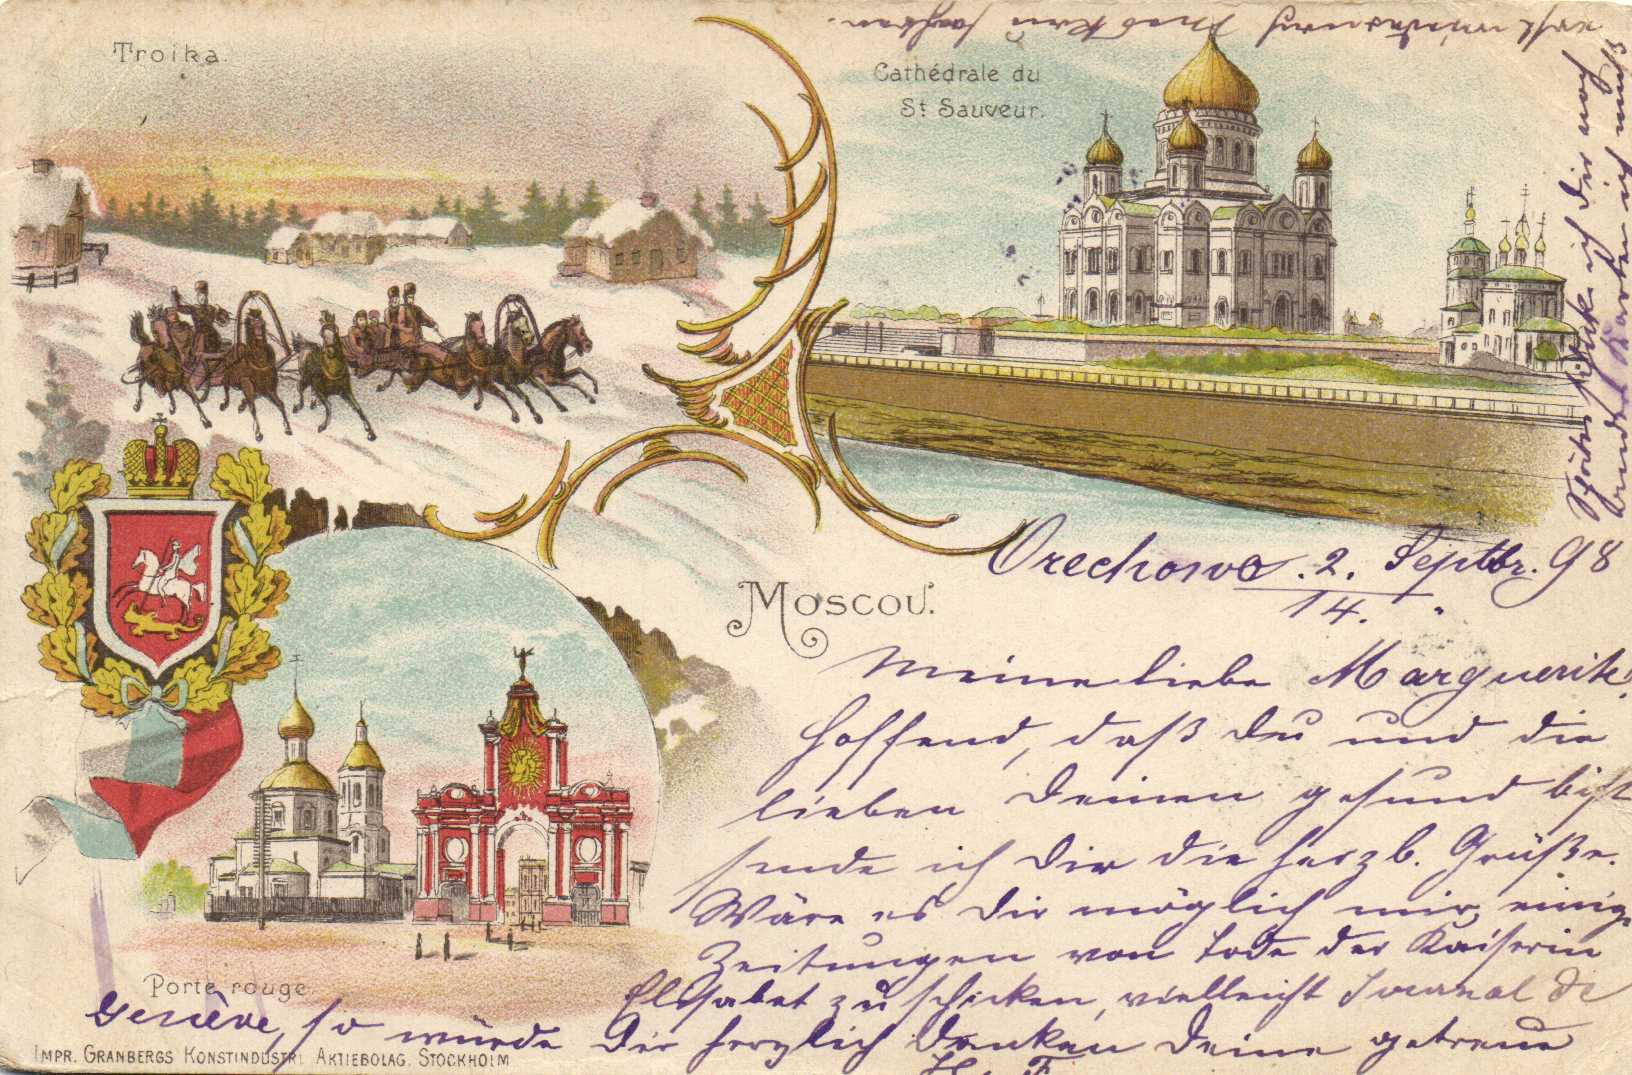 Troika.
Cathédrale du
St Sauveur.
Moscou.
Orechowo. 2. Septbr. 98
14.
Meine liebe Marguerite!
Hoffend, daß Du und die
lieben Deinen gesund bist
sende ich Dir die herzl. Grüße.
Wäre es Dir möglich mir einige
Zeitungen vom Tode der Kaiserin
Elisabet zu schicken, vielleicht Journal de
Genève, so würde Dir herzlich danken Deine getreue
H. F.
Porte rouge.
Impr. Granbergs Konstindustri Aktiebolag. Stockholm
Später schicke ich Dir noch
Karten ich muß
erst